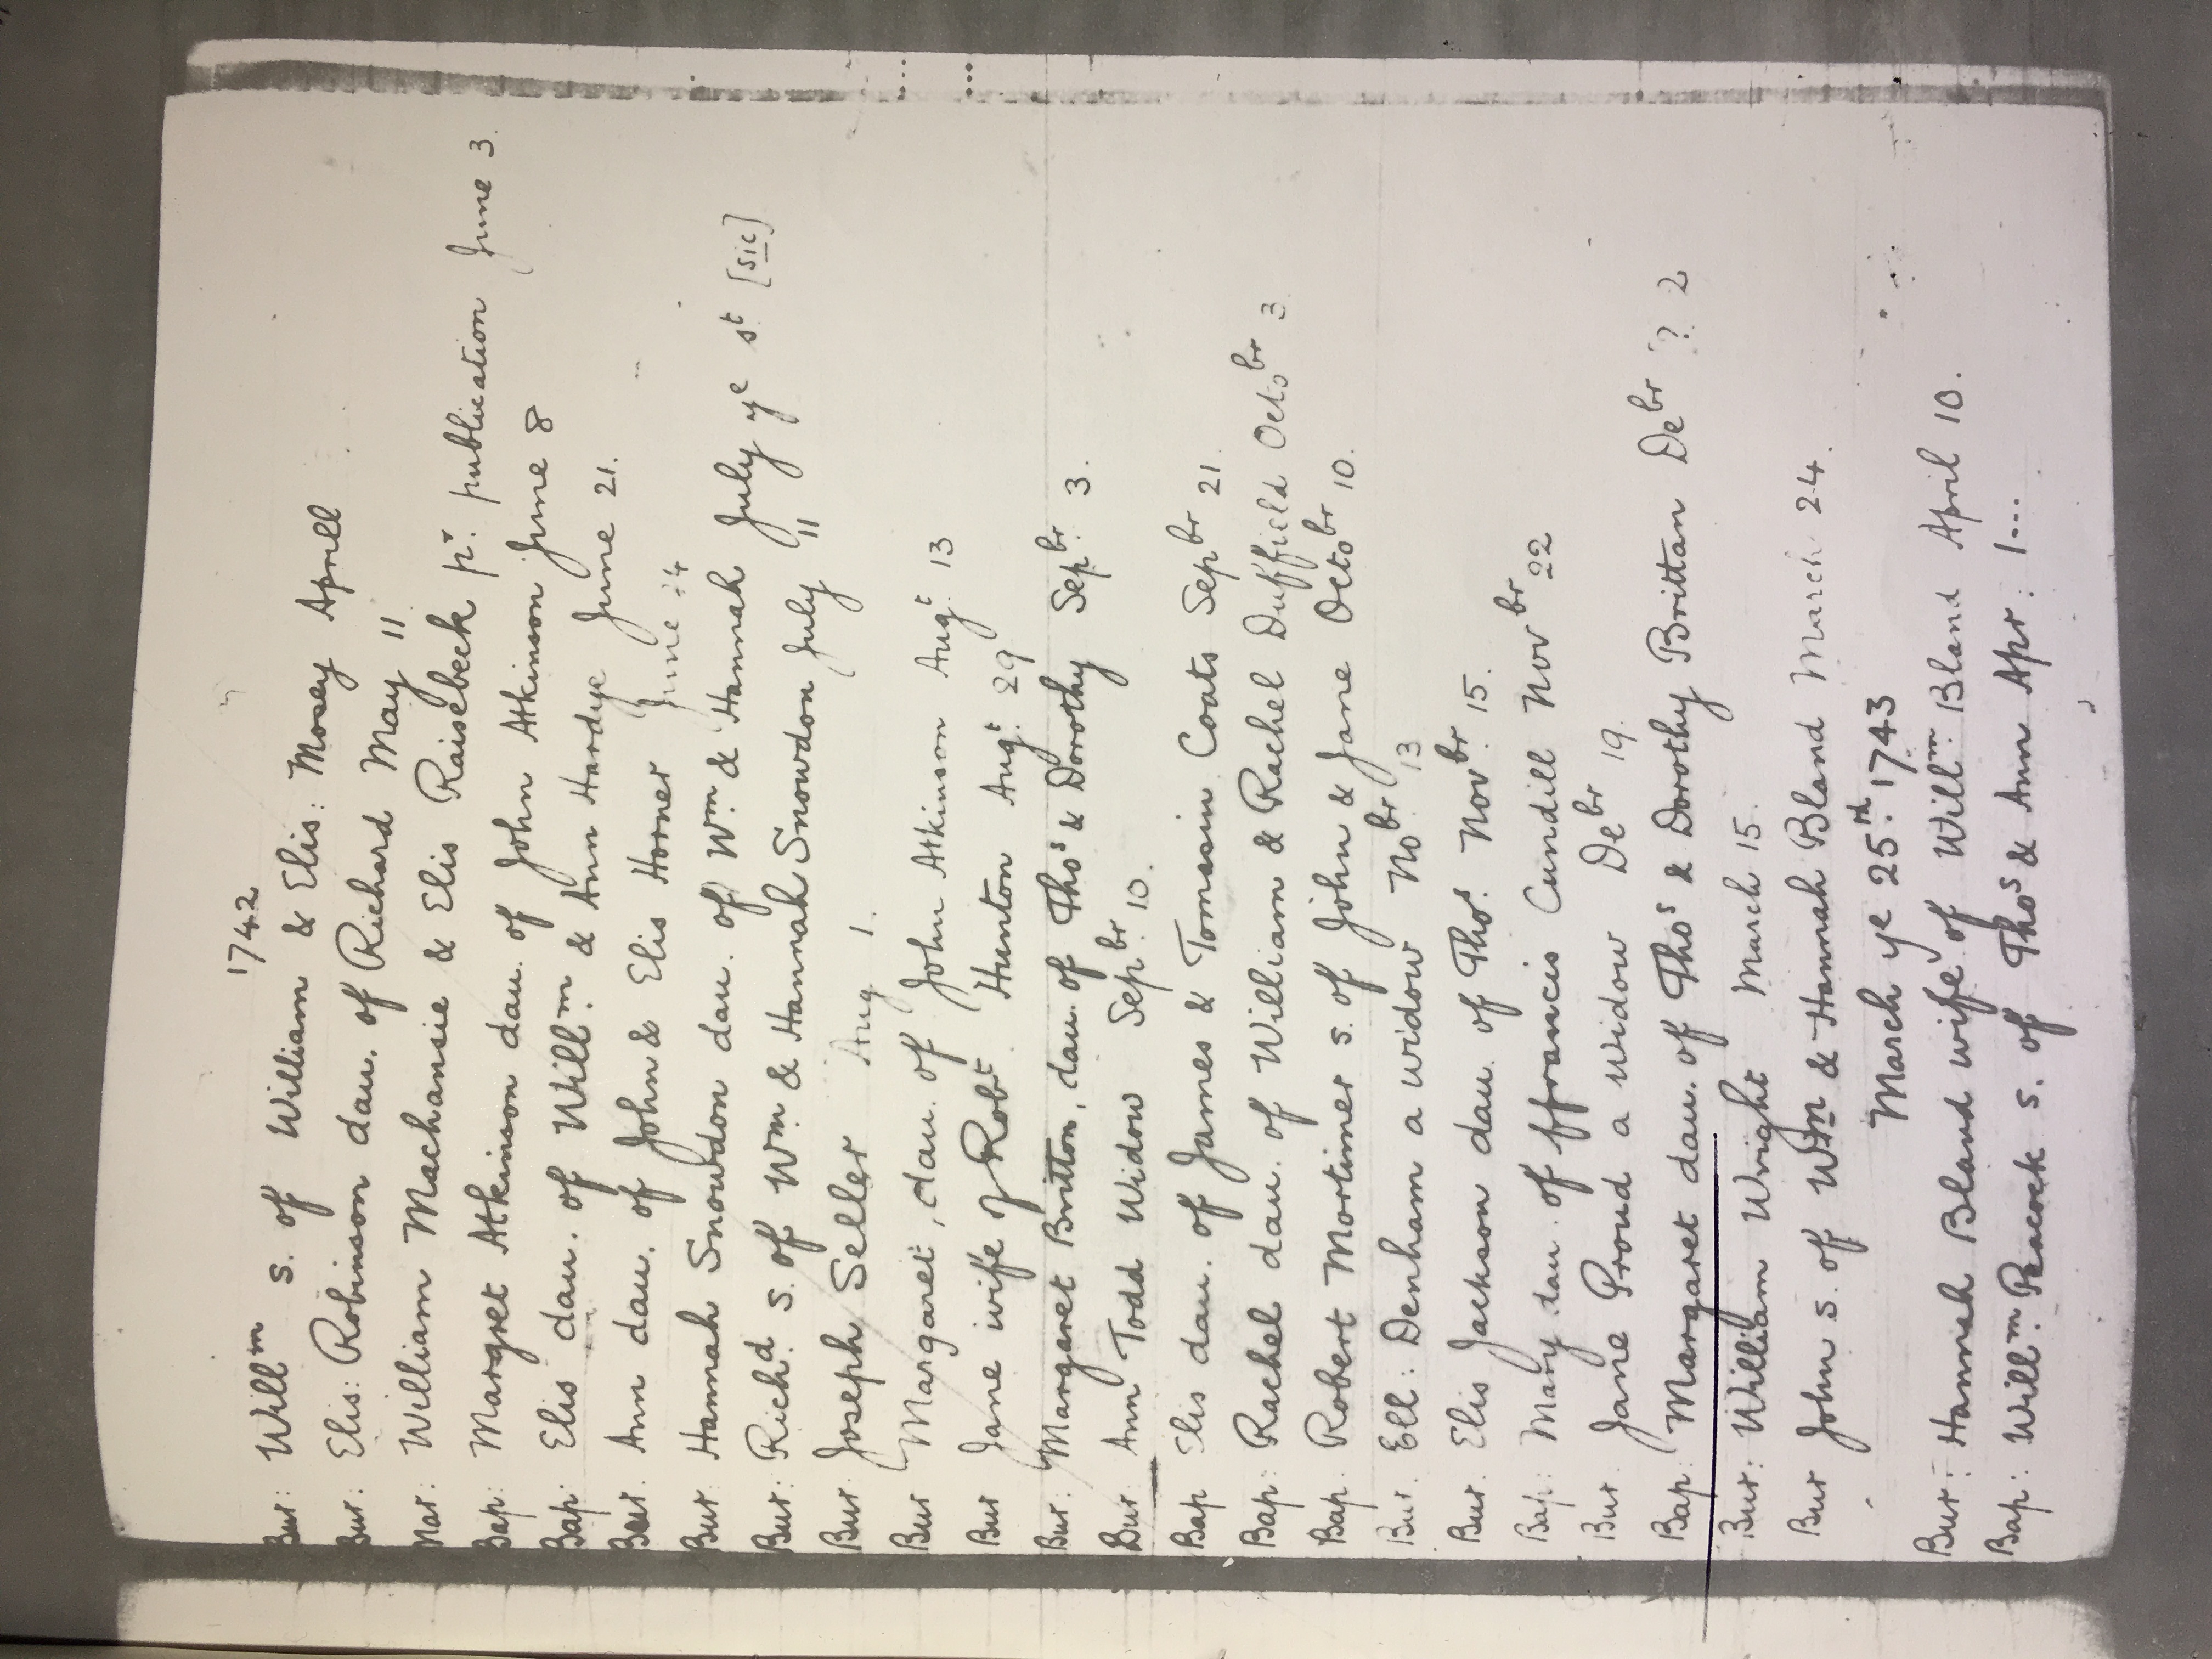 1742
Bur: Willm s. of William & Elis: Mosey Aprill
Bur: Elis: Robinson dau. of Richard May 11
Mar: William Machansie & Elis Raisebeck pr. publication June 3.
Bap: Margret Atkinson dau. of John Atkinson June 8
Bap: Elis dau. of Willm. & Ann Hardye June 21.
Bur. Ann dau. of John & Elis Horner June 24
Bur: Hannah Snowdon dau. of Wm. & Hannah July ye st. [sic]
Bur: Richd. s. of Wm. & Hannah Snowdon July 11
Bur. Joseph Seller Aug 1.
Bur Margaret, dau. of John Atkinson Augt 13
Bur Jane wife of Robt. Hunton Augt. 29
Bur: Margaret Britton, dau. of Thos & Dorothy Sepbr. 3.
Bur. Ann Todd Widow Sepbr. 10.
Bap Elis dau. of James & Tomasin Coats Sepbr 21.
Bap: Rachel dau. of William & Rachel Duffield Octobr 3
Bap. Robert Mortimer s. of John & Jane Octobr 10.
Bur. Ell: Denham a widow Nobr 13
Bur. Elis Jackson dau. of Thos. Novbr. 15.
Bap: Mary dau. of ffrancis Cundill Novbr 22
Bur. Jane Proud a widow Debr 19.
Bap: Margaret dau. of Thos & Dorothy Brittan Debr ? 2
Bur: William Wright March 15.
Bur John s. of Wm & Hannah Bland March 24.
March ye 25th. 1743
Bur: Hannah Bland wife of Willm. Bland April 10.
Bap: Willm. Peacock s. of Thos & Ann Apr: 1...